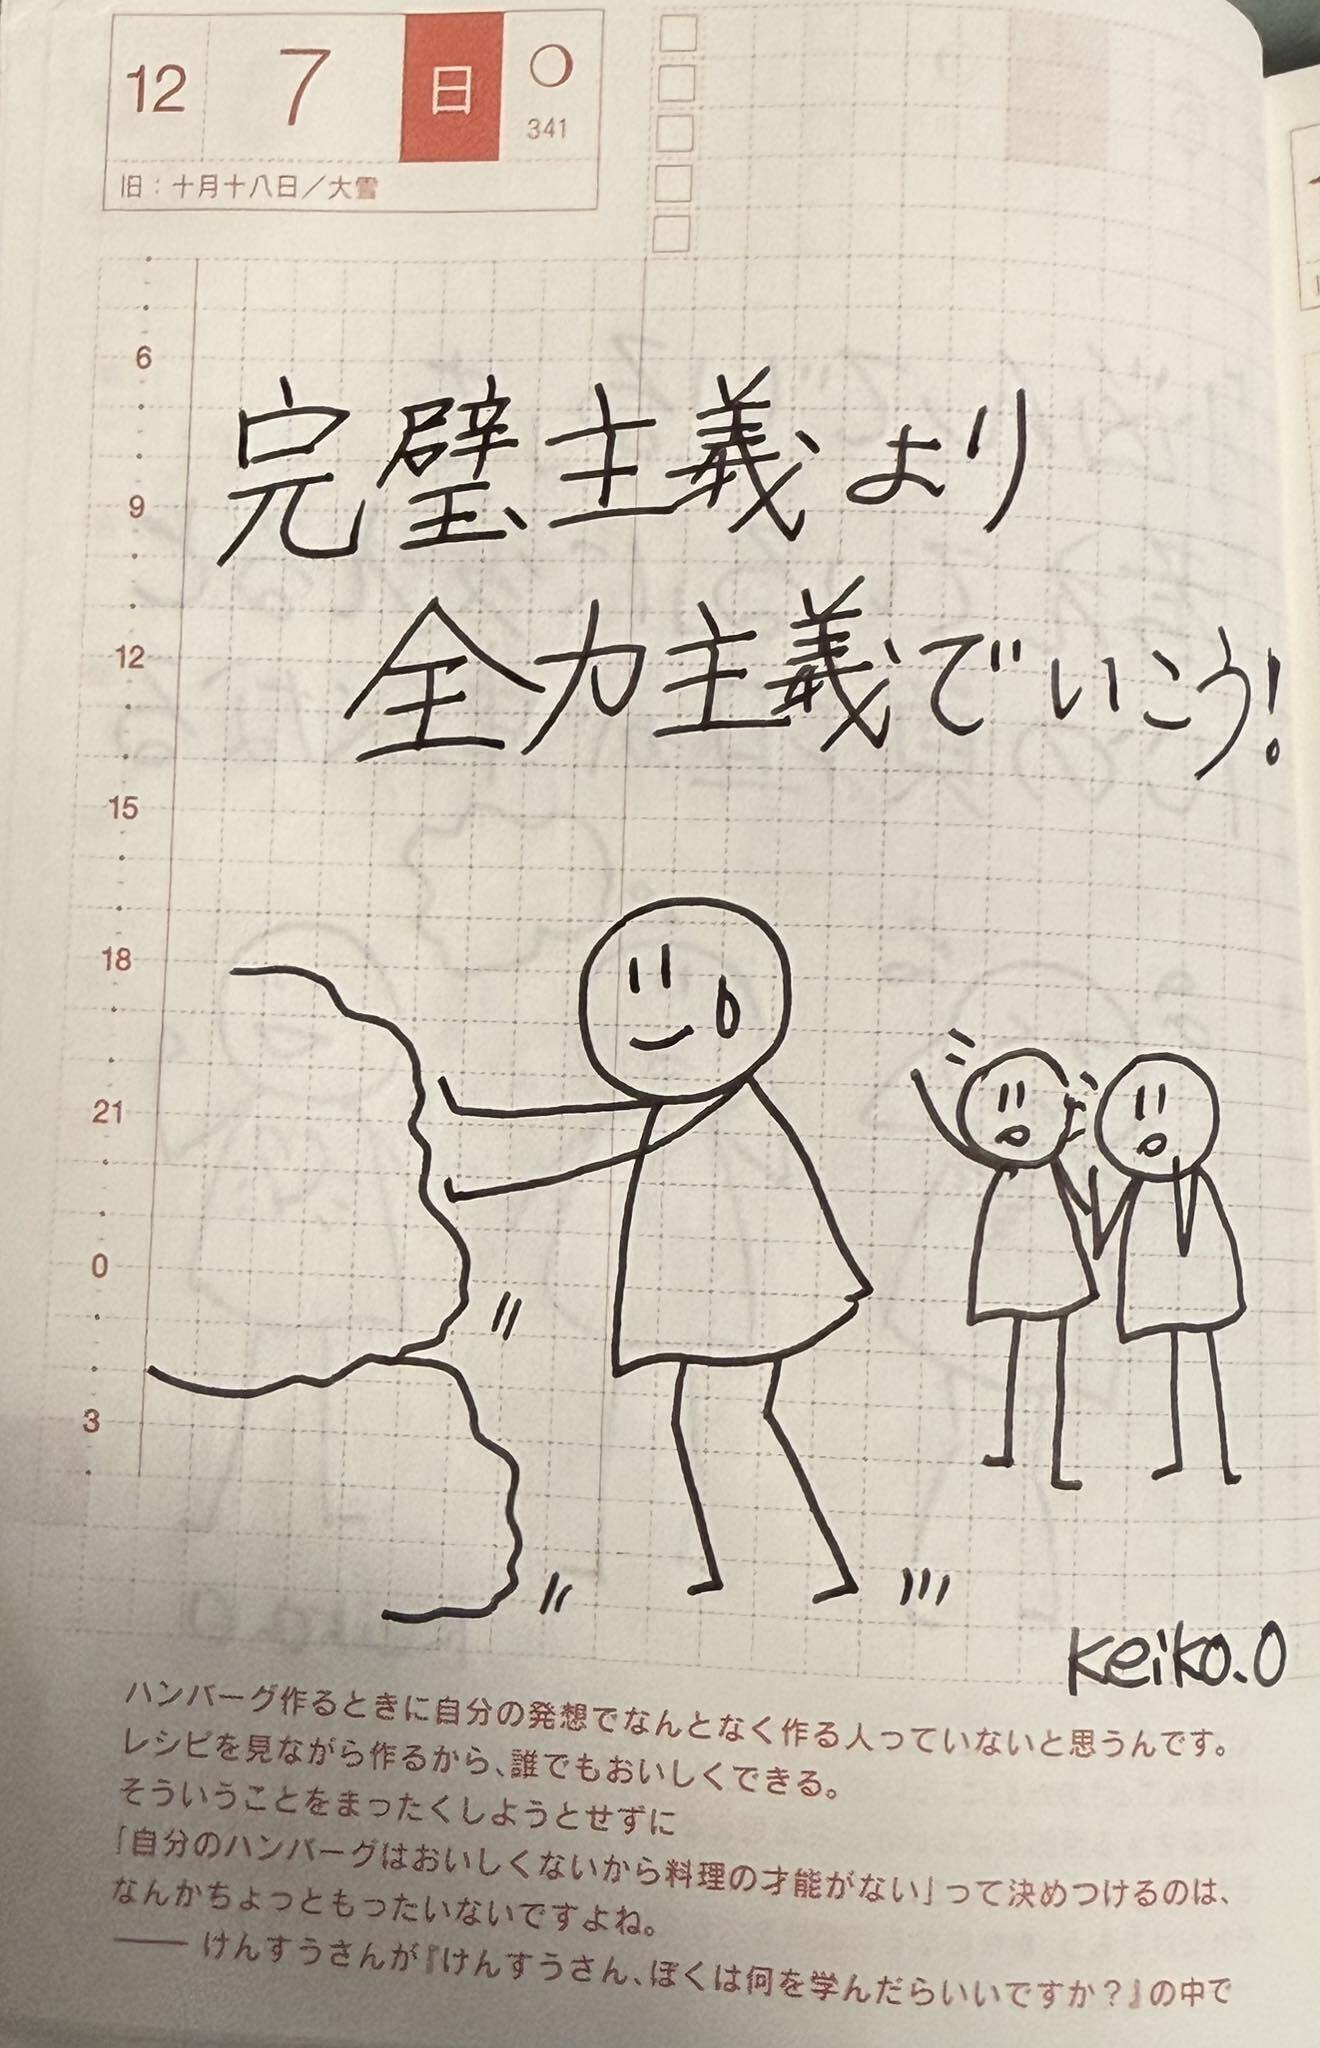 12 7 日
341
旧：十月十八日／大雪
6
9
12
15
18
21
0
3
完璧主義より
全力主義でいこう!
keiko.O
ハンバーグ作るときに自分の発想でなんとなく作る人っていないと思うんです。
レシピを見ながら作るから、誰でもおいしくできる。
そういうことをまったくしようとせずに
「自分のハンバーグはおいしくないから料理の才能がない」って決めつけるのは、
なんかちょっともったいないですよね。
── けんすうさんが『けんすうさん、ぼくは何を学んだらいいですか？』の中で